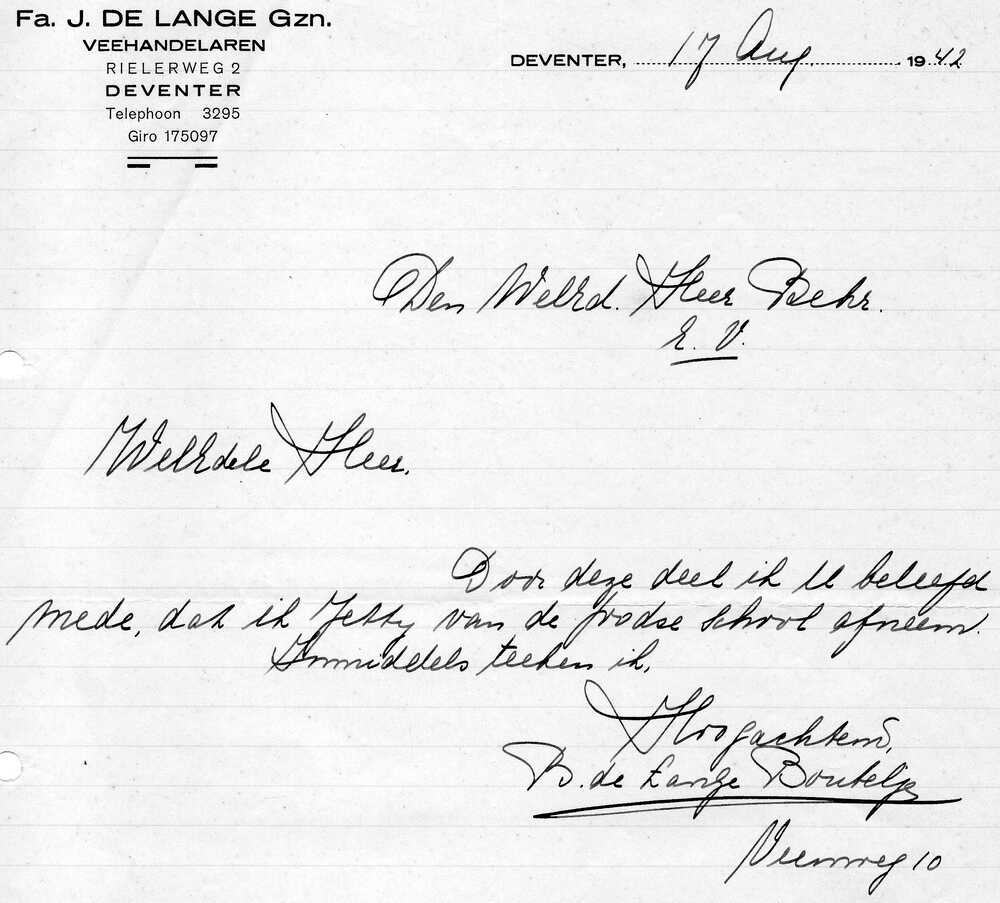 Fa. J. DE LANGE Gzn.
VEEHANDELAREN
RIELERWEG 2
DEVENTER
Telephoon 3295
Giro 175097
DEVENTER, 17 Aug. 1942
Den WelEd. Heer Behr.
E. V.
WelEdele Heer.
Door deze deel ik U beleefd
mede, dat ik Jetty van de joodse school afneem.
Inmiddels teeken ik,
Hoogachtend,
B. de Lange Boutelje
Veenweg 10